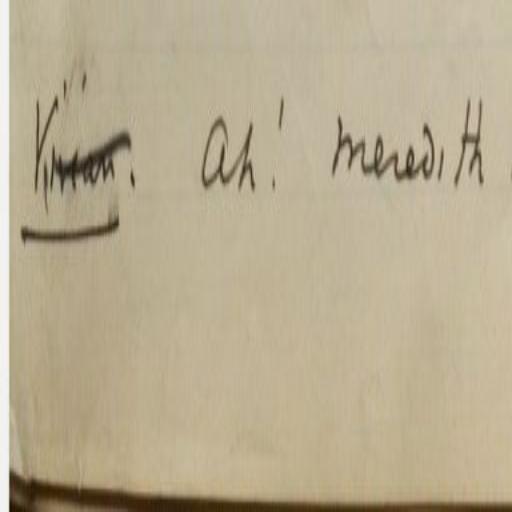 Vivian. Ah! meredith.